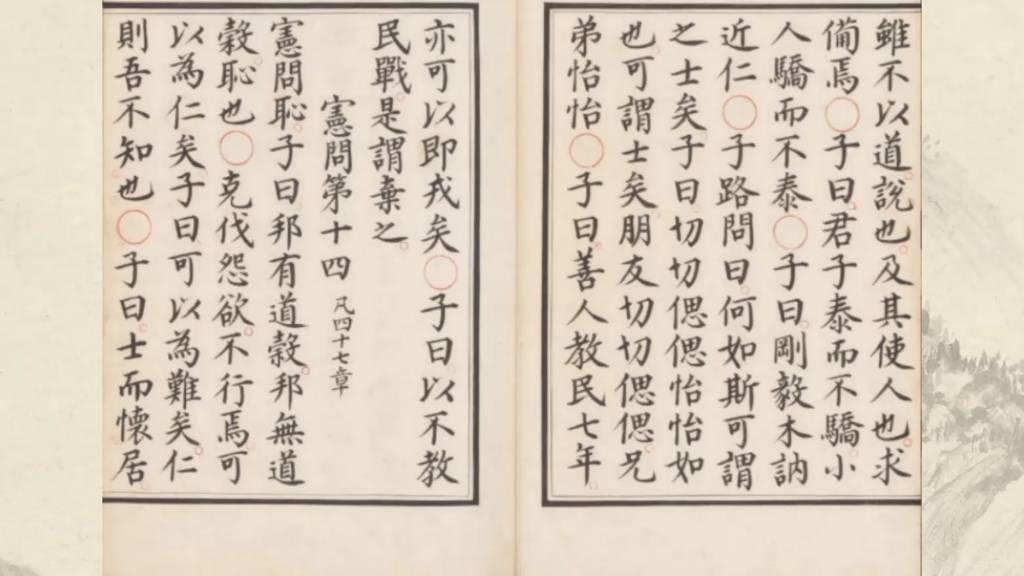 雖不以道說也及其使人也求
備焉○子曰君子泰而不驕小
人驕而不泰○子曰剛毅木訥
近仁○子路問曰何如斯可謂
之士矣子曰切切偲偲怡怡如
也可謂士矣朋友切切偲偲兄
弟怡怡○子曰善人教民七年
亦可以即戎矣○子曰以不教
民戰是謂棄之
憲問第十四 凡四十七章
憲問恥子曰邦有道穀邦無道
穀恥也○克伐怨欲不行焉可
以為仁矣子曰可以為難矣仁
則吾不知也○子曰士而懷居